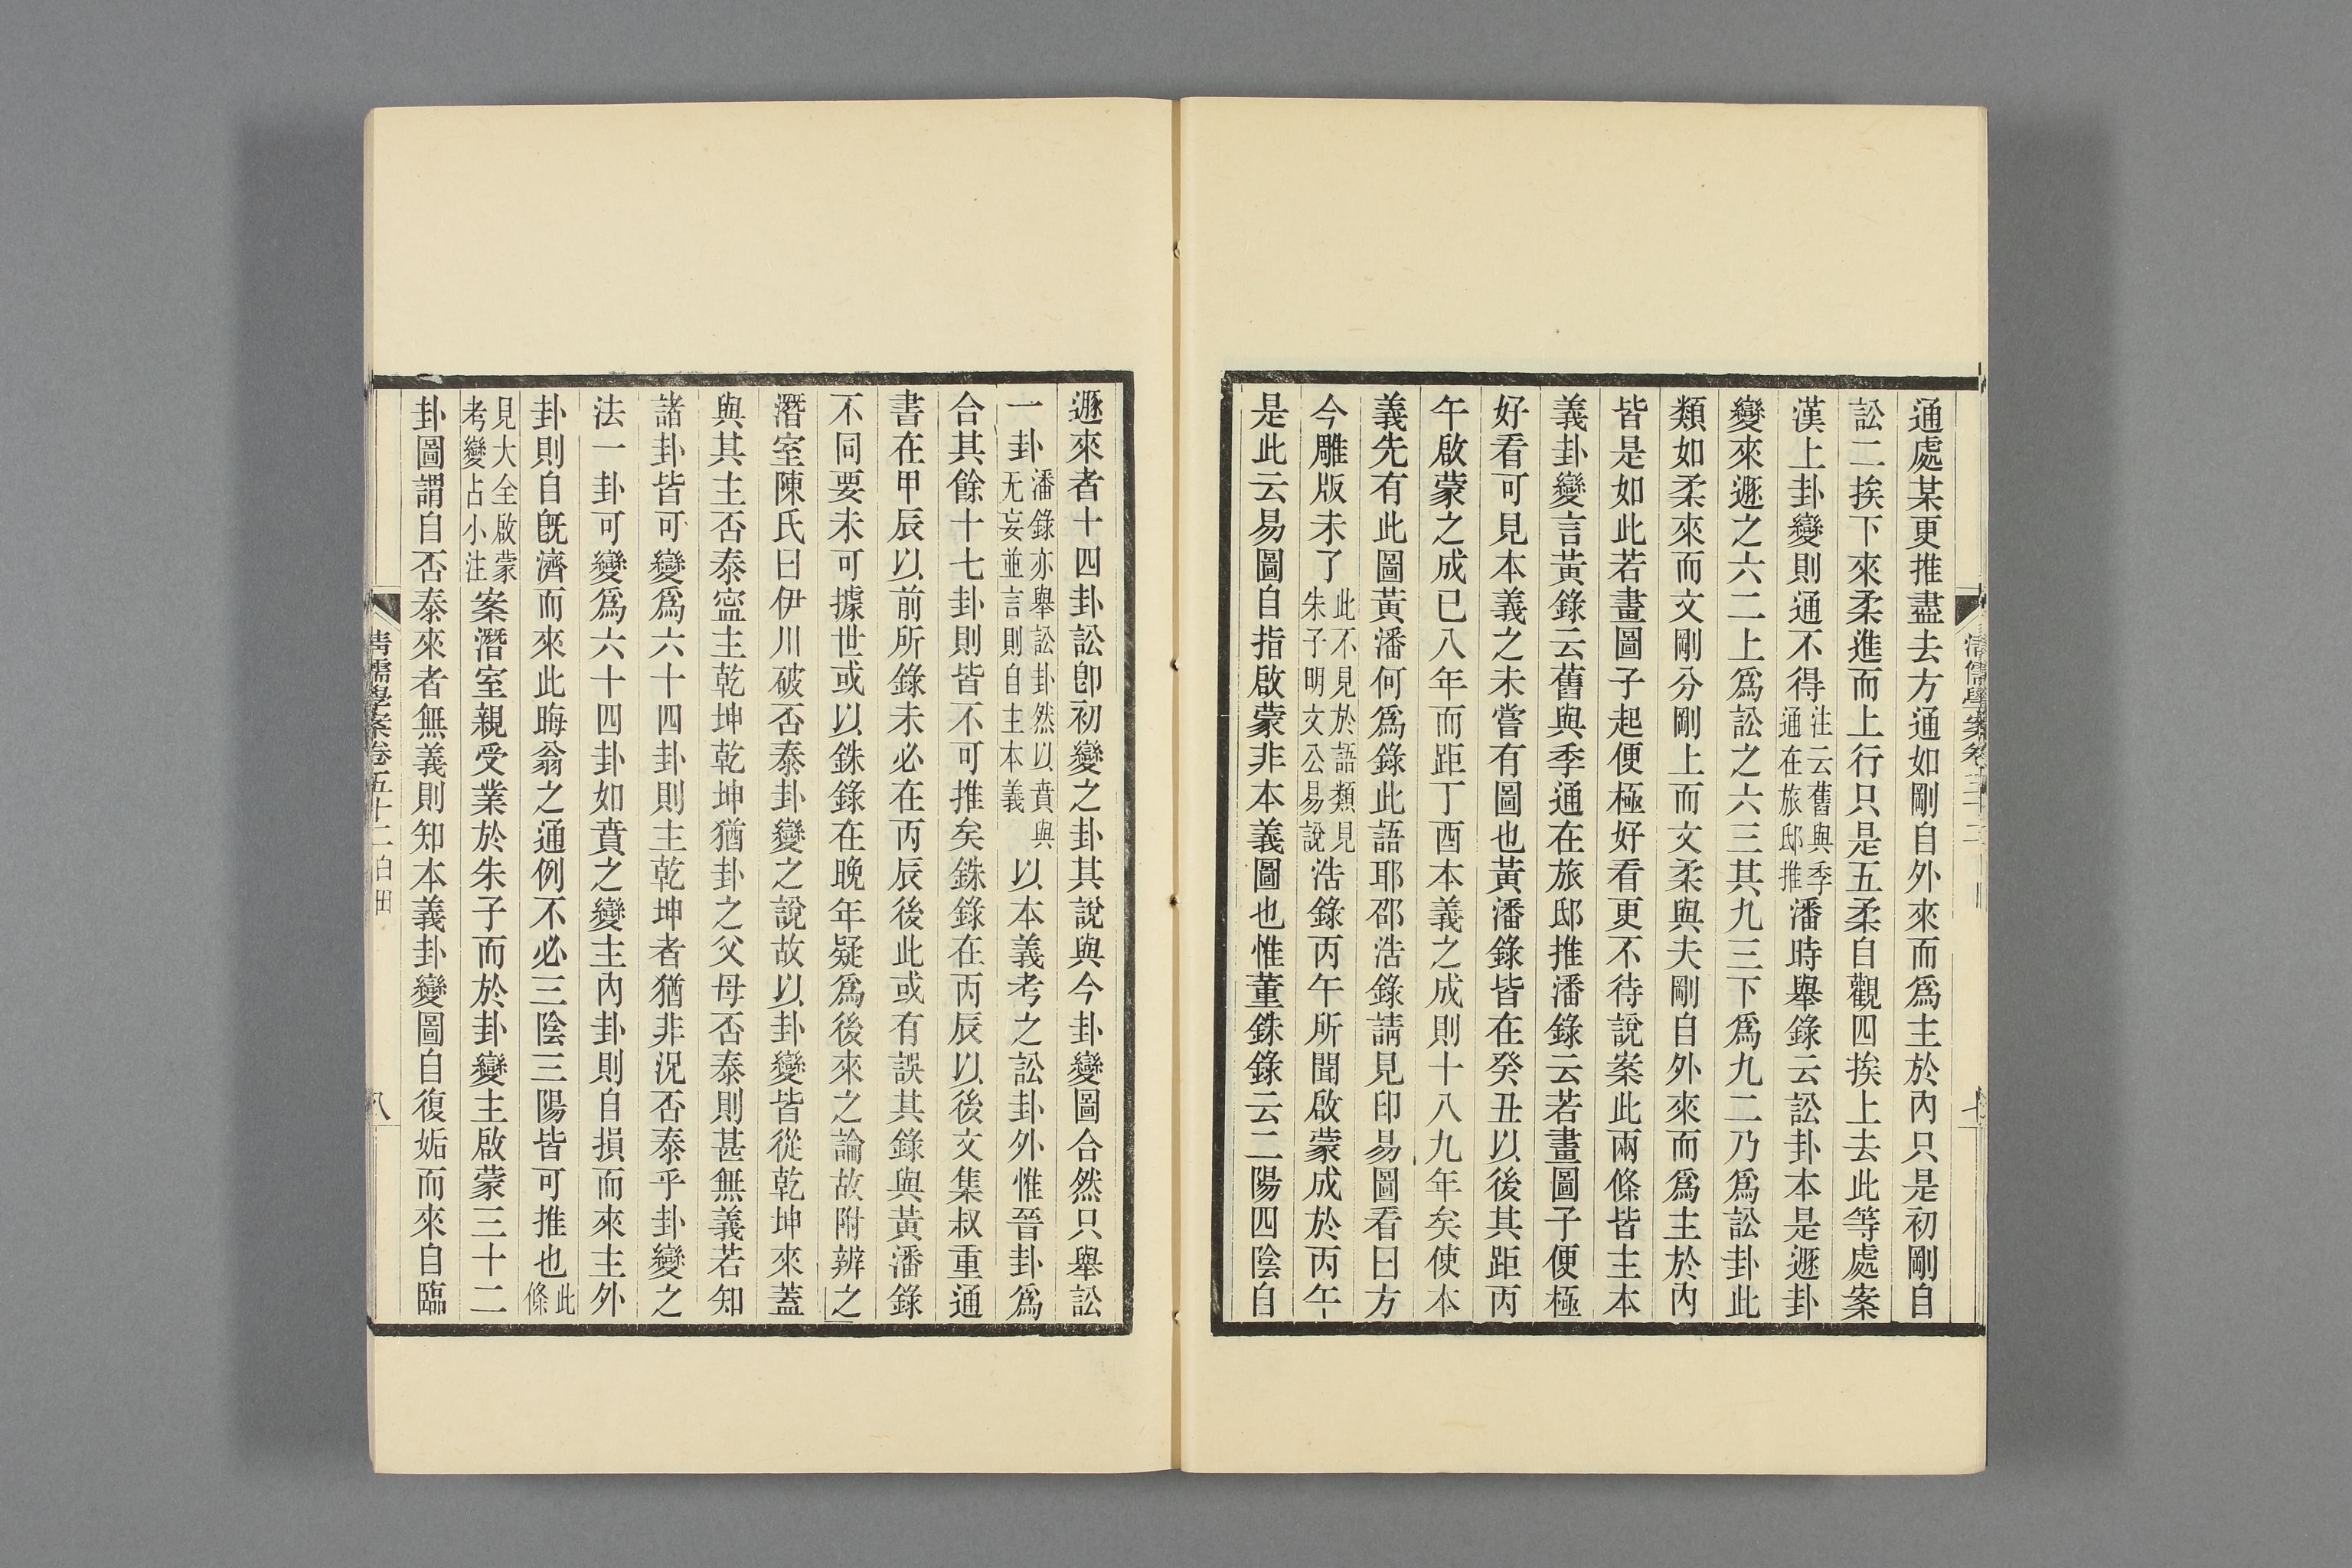 通處某更推盡去方通如剛自外來而爲主於內只是初剛自
訟二挨下來柔進而上行只是五柔自觀四挨上去此等處案
漢上卦變則通不得注云舊與季通在旅邸推潘時舉錄云訟卦本是遯卦
變來遯之六二上爲訟之六三其九三下爲九二乃爲訟卦此
類如柔來而文剛分剛上而文柔與夫剛自外來而爲主於內
皆是如此若畫圖子起便極好看更不待說案此兩條皆主本
義卦變言黃錄云舊與季通在旅邸推潘錄云若畫圖子便極
好看可見本義之未嘗有圖也黃潘錄皆在癸丑以後其距丙
午啟蒙之成已八年而距丁酉本義之成則十八九年矣使本
義先有此圖黃潘何爲錄此語耶邵浩錄請見印易圖看曰方
今雕版未了此不見於語類見朱子明文公易說浩錄丙午所聞啟蒙成於丙午
是此云易圖自指啟蒙非本義圖也惟董銖錄云二陽四陰自
遯來者十四卦訟卽初變之卦其說與今卦變圖合然只舉訟
一卦潘錄亦舉訟卦然以賁與无妄並言則自主本義以本義考之訟卦外惟晉卦爲
合其餘十七卦則皆不可推矣銖錄在丙辰以後文集叔重通
書在甲辰以前所錄未必在丙辰後此或有誤其錄與黃潘錄
不同要未可據世或以銖錄在晚年疑爲後來之論故附辨之
潛室陳氏曰伊川破否泰卦變之說故以卦變皆從乾坤來蓋
與其主否泰寍主乾坤乾坤猶卦之父母否泰則甚無義若知
諸卦皆可變爲六十四卦則主乾坤者猶非況否泰乎卦變之
法一卦可變爲六十四卦如賁之變主內卦則自損而來主外
卦則自旣濟而來此晦翁之通例不必三陰三陽皆可推也此條
見大全啟蒙考變占小注案潛室親受業於朱子而於卦變主啟蒙三十二
卦圖謂自否泰來者無義則知本義卦變圖自復姤而來自臨
清儒學案卷五十二 八